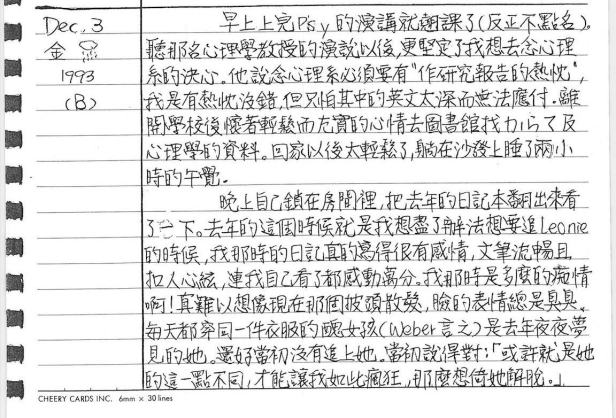 Dec. 3
金
1993
(B)
早上上完Psy的演講就翹課了(反正不點名)。
聽那名心理學教授的演說以後,更堅定了我想去念心理
系的決心。他說念心理系必須要有"作研究報告的熱忱",
我是有熱忱沒錯,但只怕其中的英文太深而無法應付。離
開學校後懷者輕鬆而充實的心情去圖書館找カらて及
心理學的資料。回家以後太輕鬆了,躺在沙發上睡了兩小
時的午覺。
晚上自己鎖在房間裡,把去年的日記本翻出來看
了一下。去年的這個時候就是我想盡了辦法想要追Leonie
的時候,我那時的日記真的寫得很有感情,文筆流暢且
扣人心絃,連我自己看了都感動萬分。我那時是多麼的痴情
啊!真難以想像現在那個披頭散髮,臉的表情總是臭臭,
每天都穿同一件衣服的醜女孩(Weber言之)是去年夜夜夢
見的她。還好當初沒有追上她。當初說得對:「或許就是她
的這一點不同,才能讓我如此瘋狂,那麼想倚她解脫。」
CHEERY CARDS INC. 6mm × 30 lines